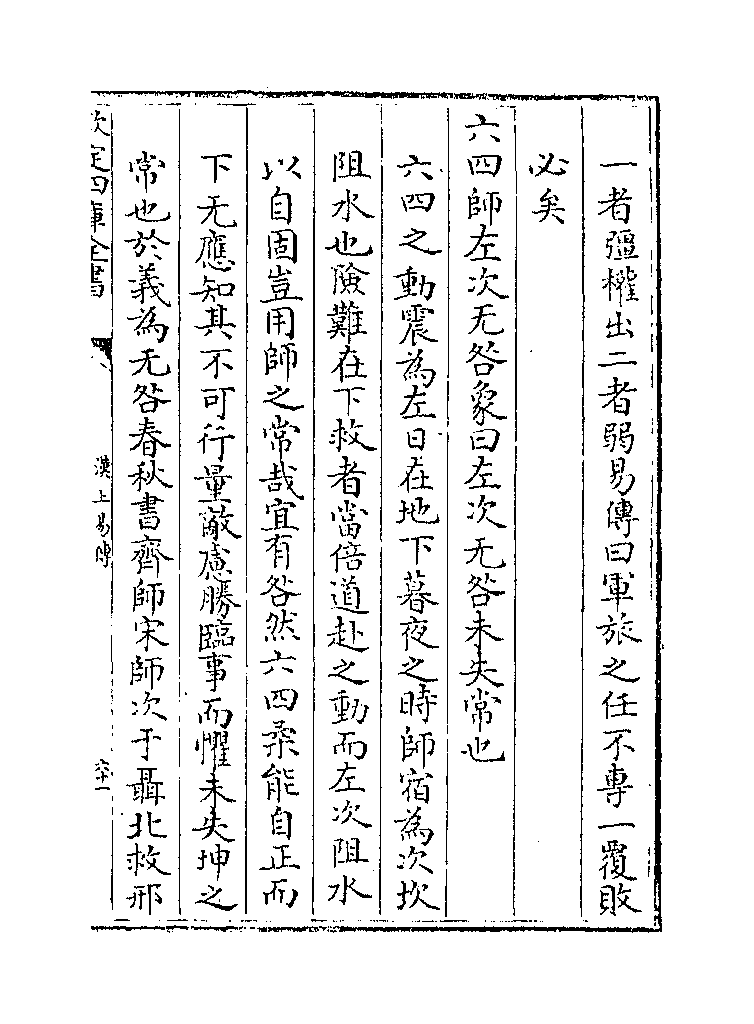 一者彊權出二者弱易傳曰軍旅之任不専一覆敗
必矣
六四師左次无咎象曰左次无咎未失常也
六四之動震為左日在地下暮夜之時師宿為次坎
阻水也險難在下救者當倍道赴之動而左次阻水
以自固豈用師之常哉宜有咎然六四柔能自正而
下无應知其不可行量敵慮勝臨事而懼未失坤之
常也於義為无咎春秋書齊師宋師次于聶北救邢
欽定四庫全書
漢上易傳
六十一